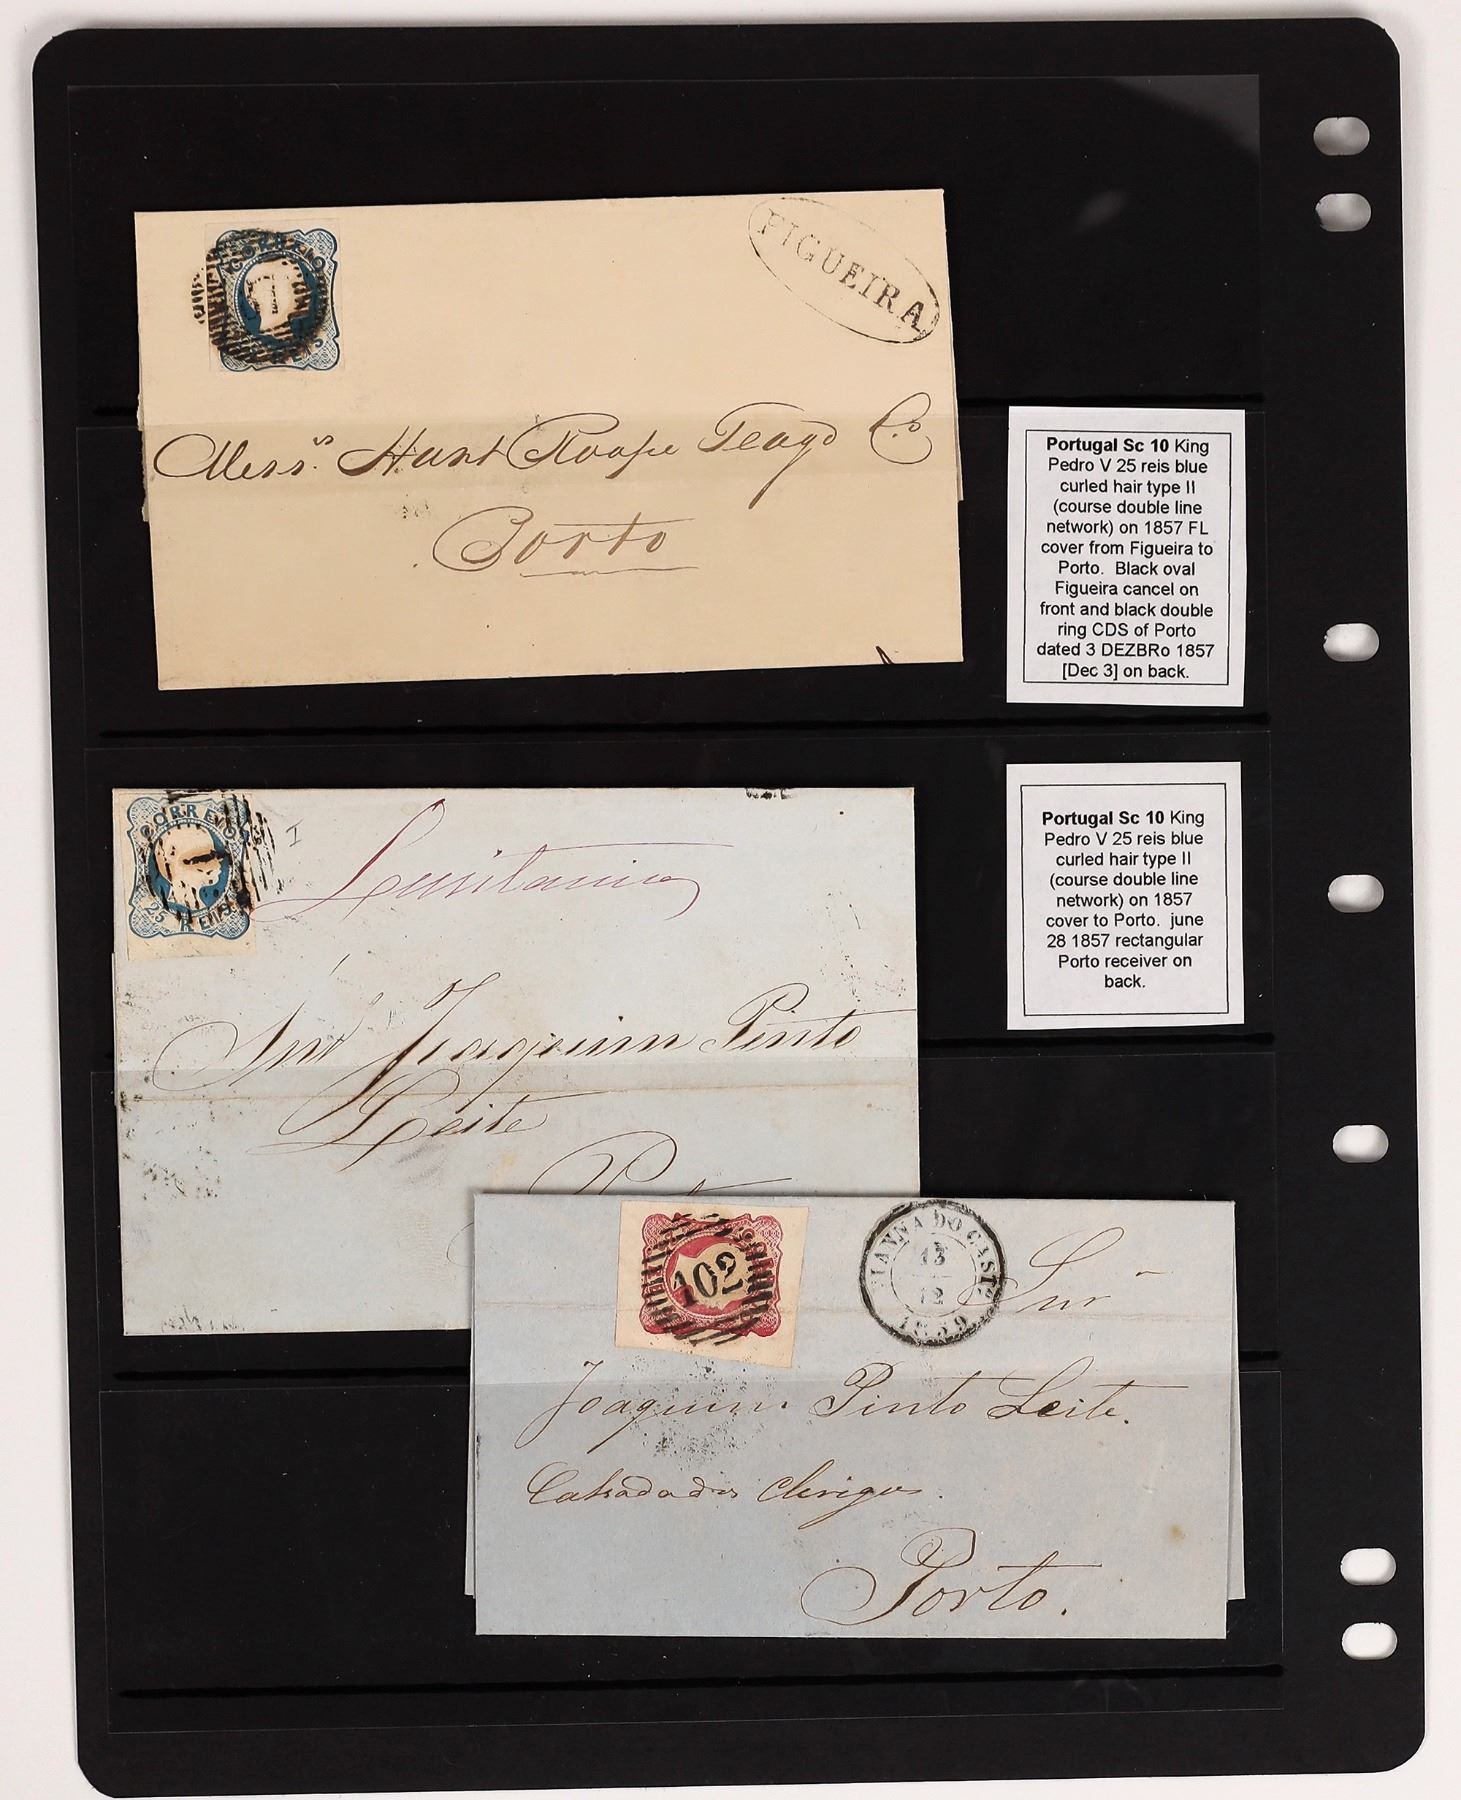 CORREIO
REIS
FIGUEIRA
Mess.rs Hunt Roope Teage Co
Porto
Portugal Sc 10 King
Pedro V 25 reis blue
curled hair type II
(course double line
network) on 1857 FL
cover from Figueira to
Porto. Black oval
Figueira cancel on
front and black double
ring CDS of Porto
dated 3 DEZBRo 1857
[Dec 3] on back.
CORREIO
25 REIS
I
Lusitania
Joaquim Pinto
Leite
Portugal Sc 10 King
Pedro V 25 reis blue
curled hair type II
(course double line
network) on 1857
cover to Porto. june
28 1857 rectangular
Porto receiver on
back.
102
VIANNA DO CASTº
13
12
1859
Snr
Joaquim Pinto Leite.
Calsada dos Clerigos.
Porto.